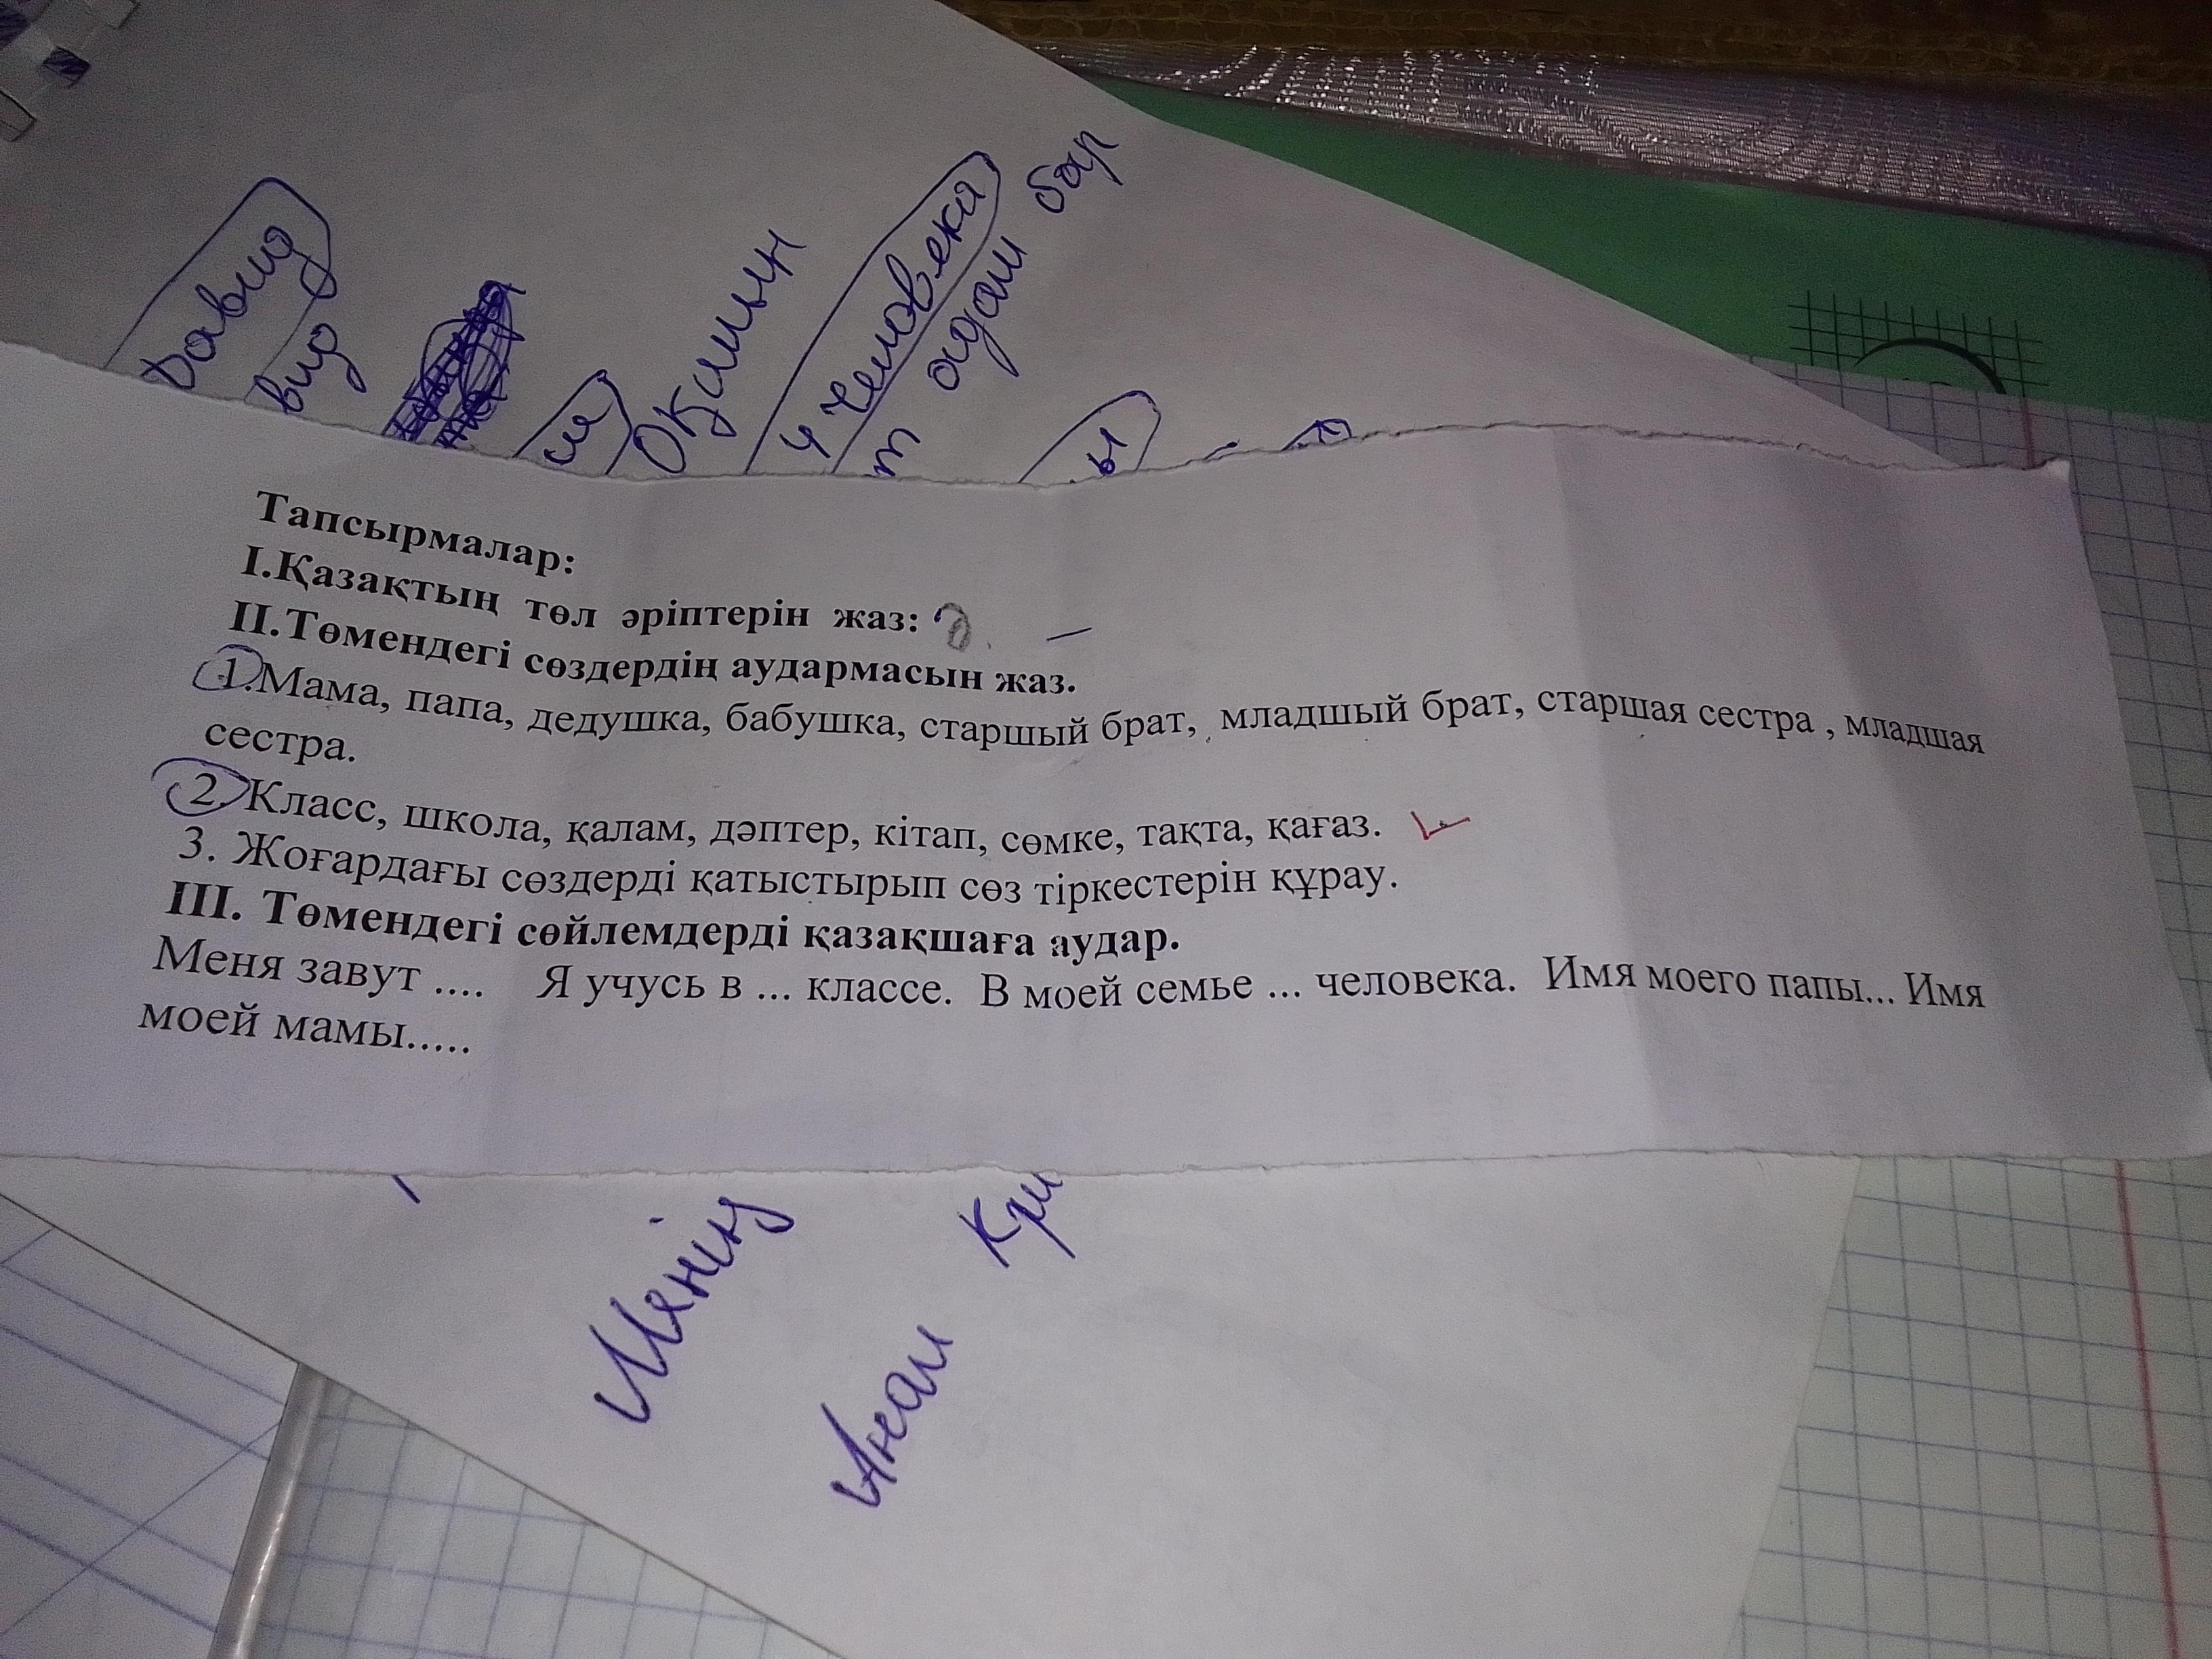 Давид
вид
Оқимын
4 человека
адам бар
ы
Тапсырмалар:
І.Қазақтың төл әріптерін жаз:
ІІ.Төмендегі сөздердің аудармасын жаз.
1.Мама, папа, дедушка, бабушка, старшый брат, младшый брат, старшая сестра , младшая
сестра.
2. Класс, школа, қалам, дәптер, кітап, сөмке, тақта, қағаз.
3. Жоғардағы сөздерді қатыстырып сөз тіркестерін құрау.
ІІІ. Төмендегі сөйлемдерді қазақшаға аудар.
Меня завут .... Я учусь в ... классе. В моей семье ... человека. Имя моего папы... Имя
моей мамы.....
Менің
Анам Кри